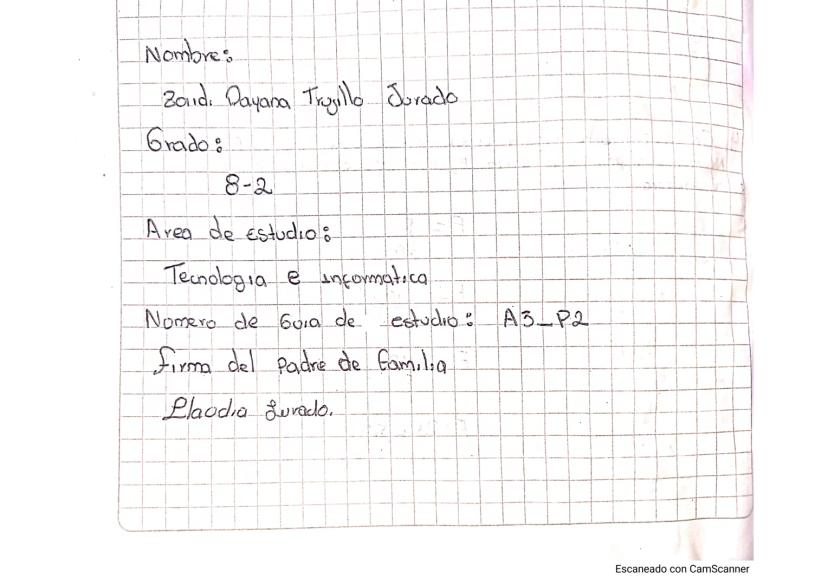 Nombre:
Zaid. Dayana Trujillo Jurado
Grado:
8-2
Area de Estudio:
Tecnologia e informatica
Nomero de Guia de estudio: A3_P2
firma del Padre de familia
Claudia Jurado.
Escaneado con CamScanner